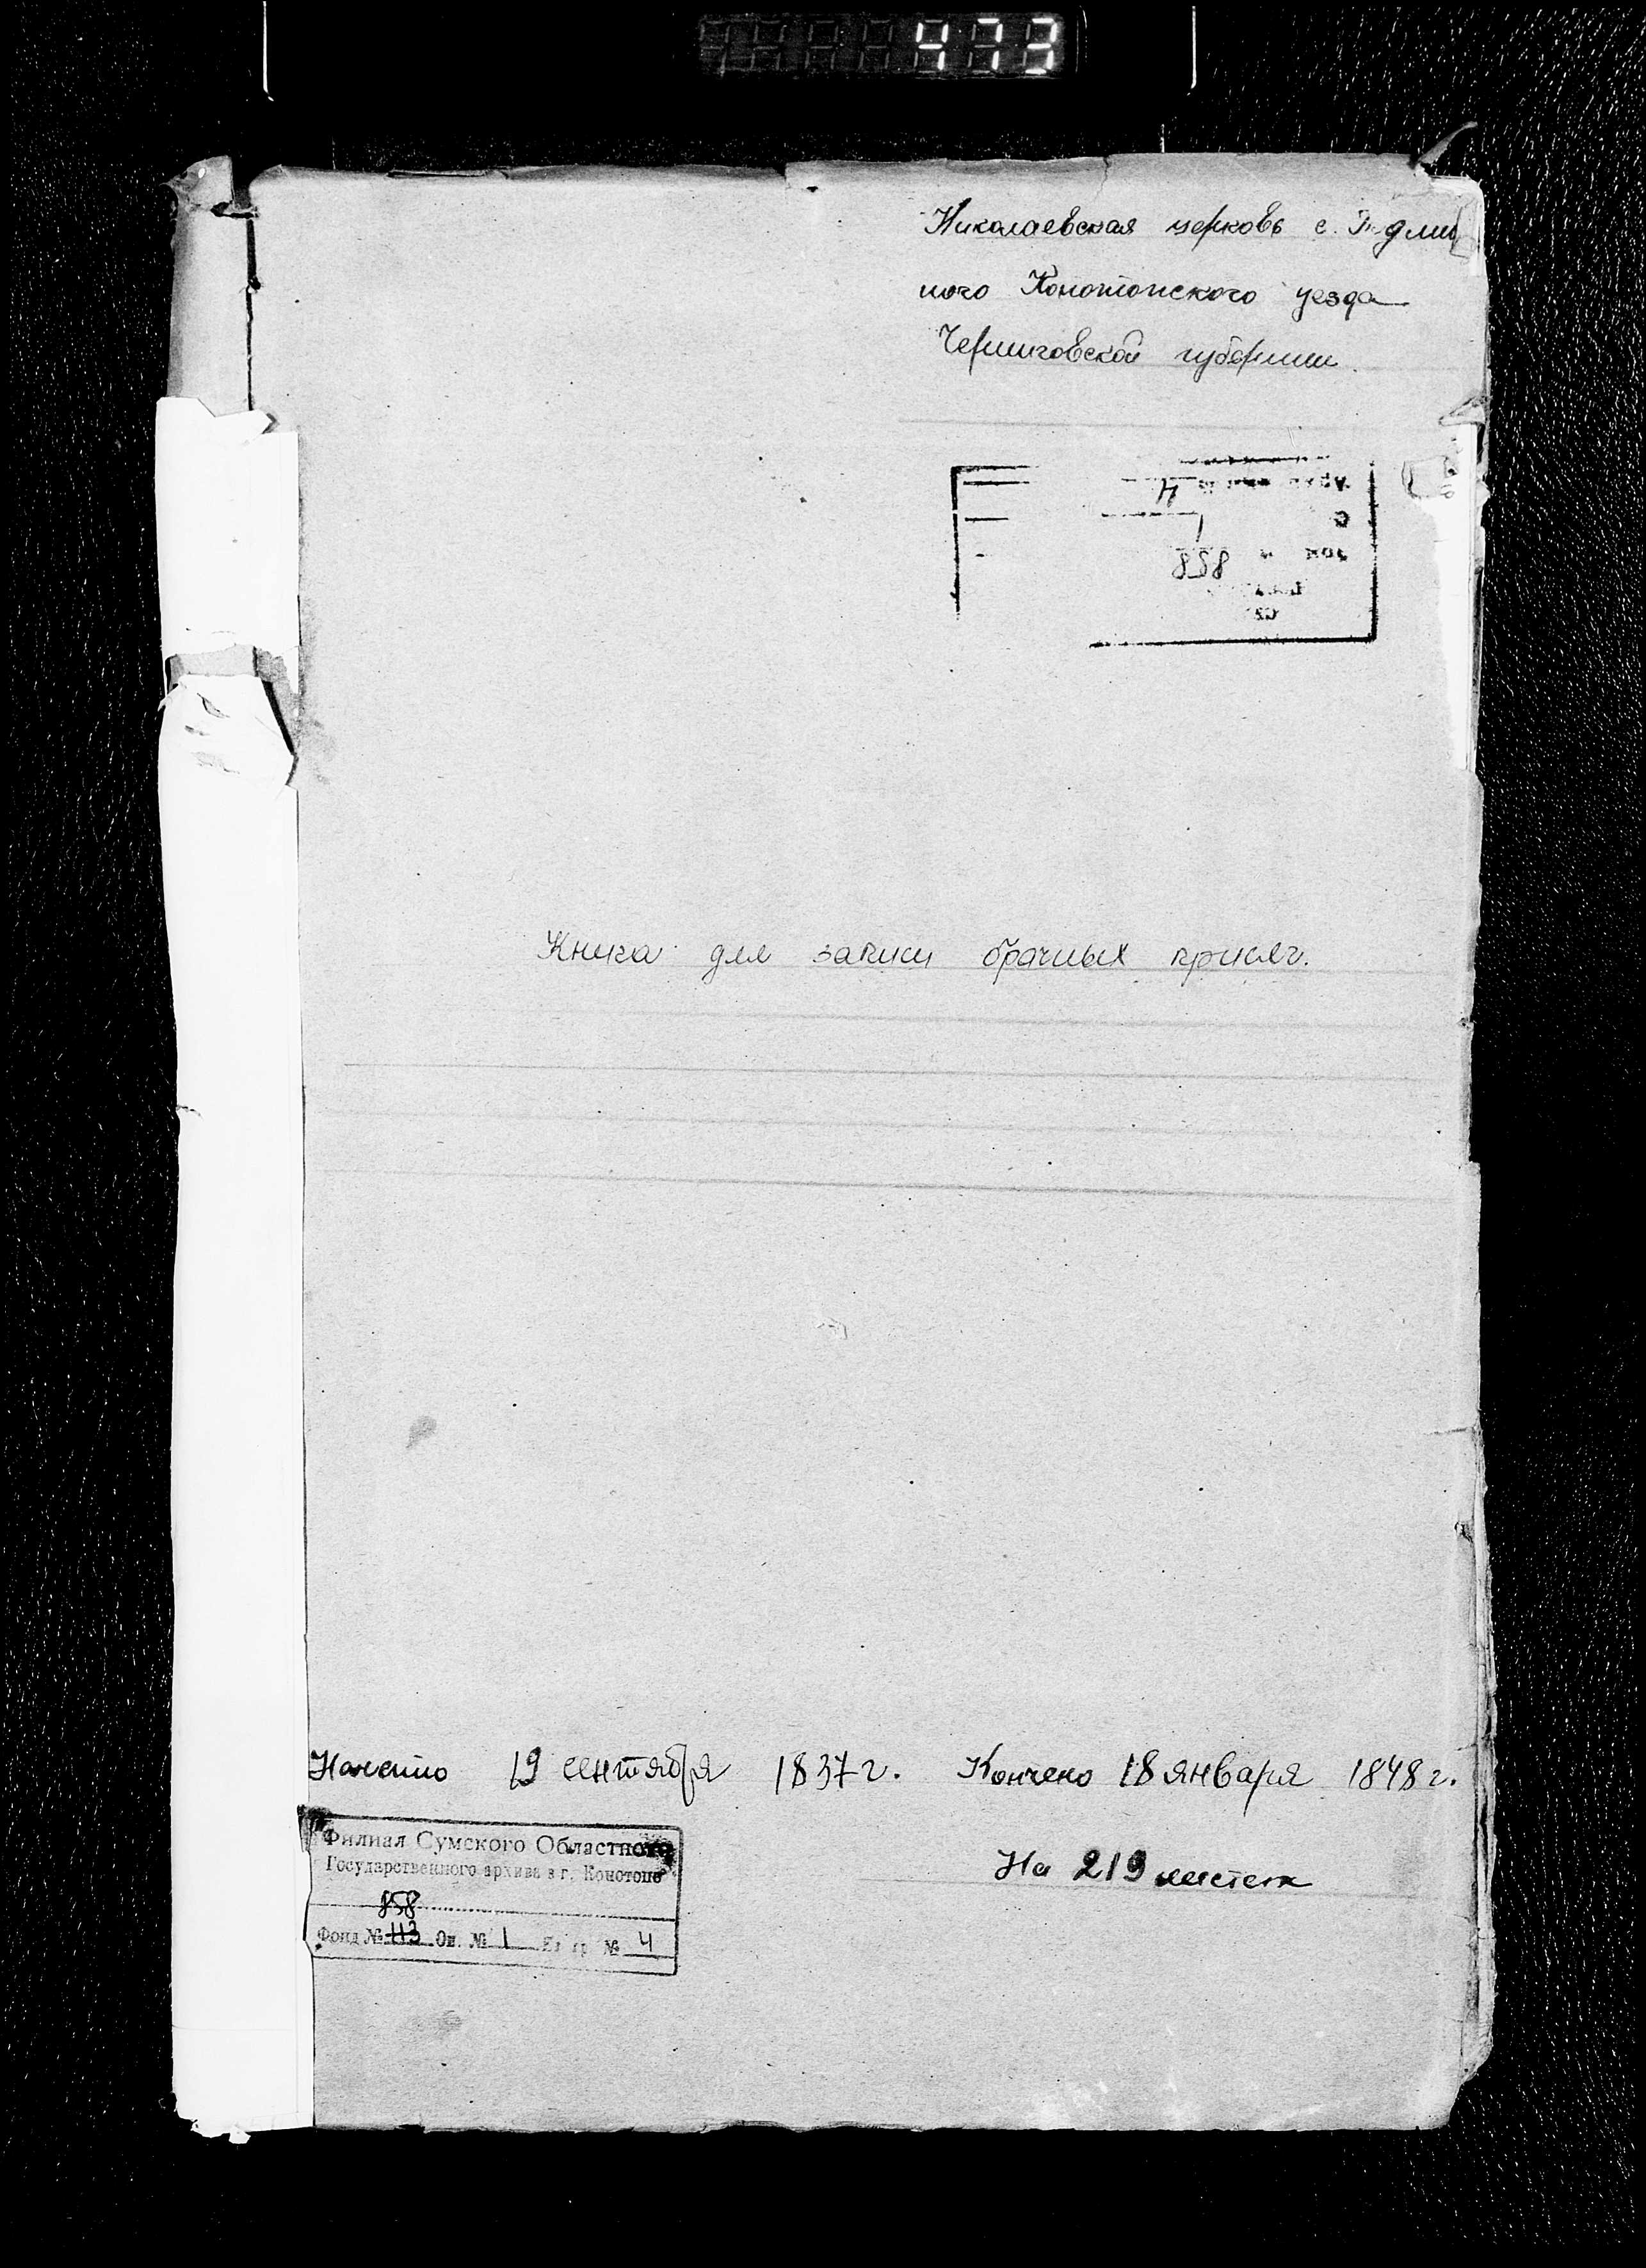 473
Николаевская церковь с. Подлип
ного Конотопского уезда
Черниговской губернии.
4
1
858
Книга для записи брачных присяг.
Начато 19 сентября 1837 г. Кончено 18 января 1848 г.
Филиал Сумского Областного
Государственного архива в г. Конотопе
На 219 листах
858
Фонд № 113 Оп. № 1 Ед. хр. № 4